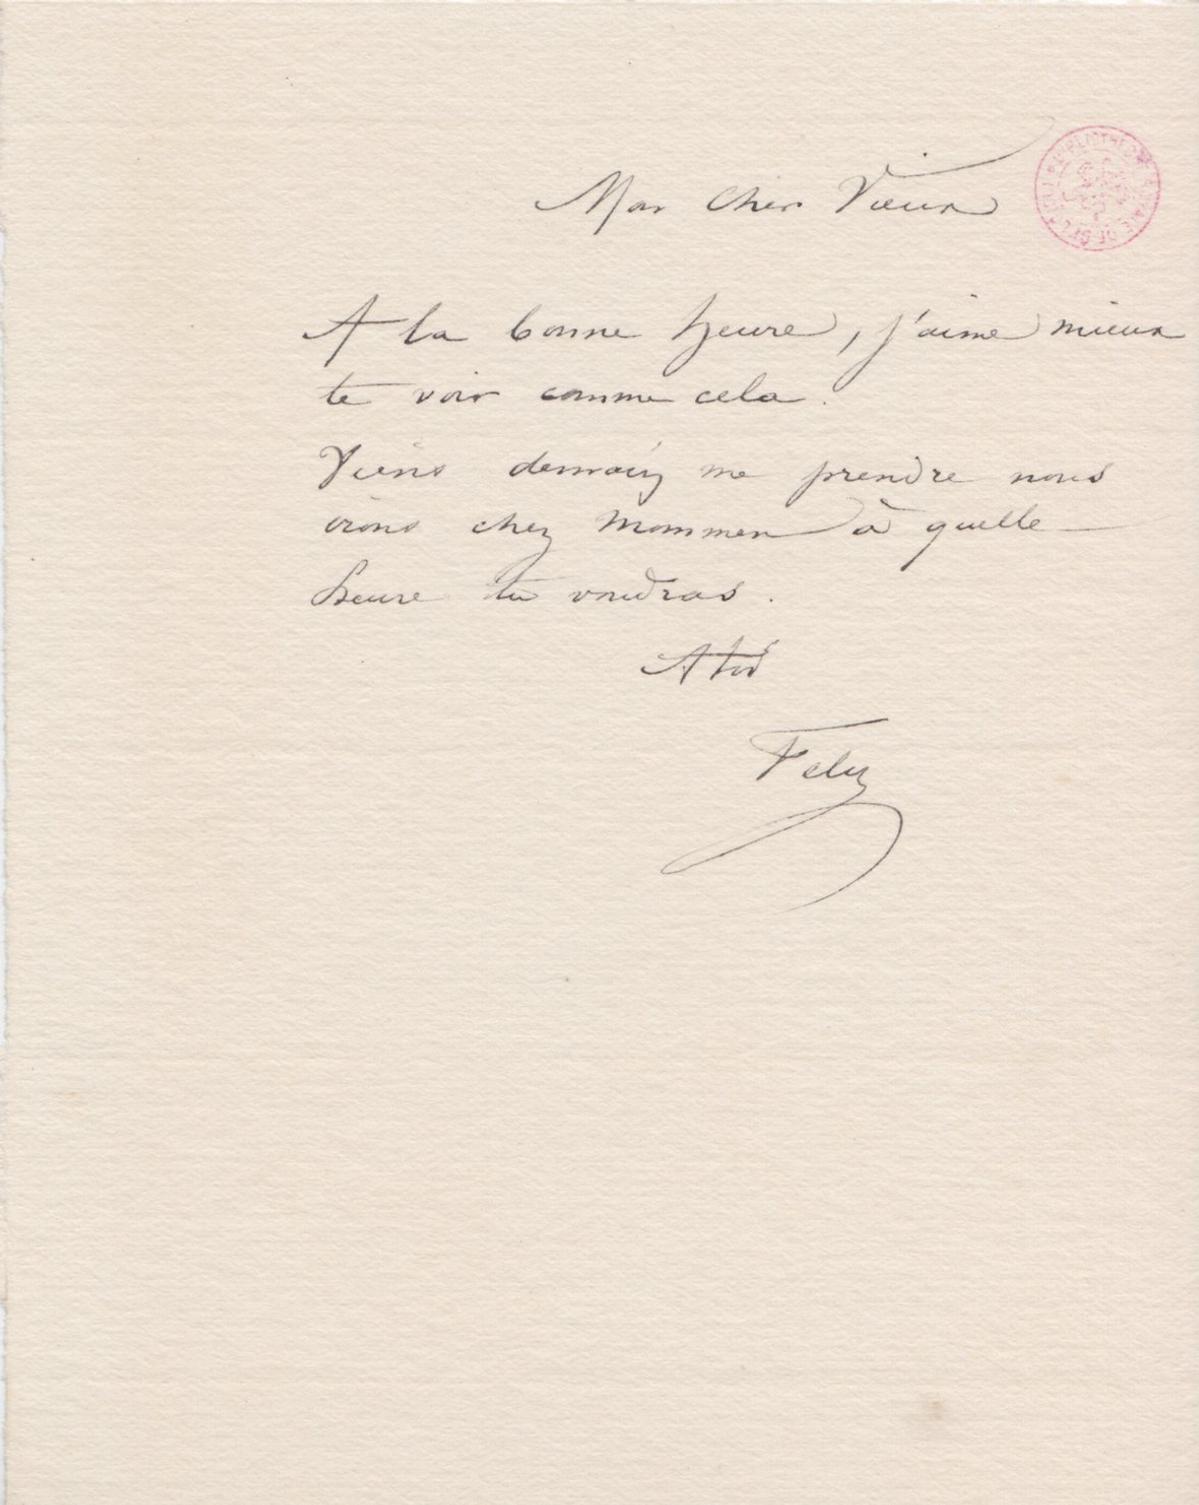 Mon Cher Vieux
A la bonne heure, j'aime mieux
te voir comme cela.
Viens demain me prendre nous
irons chez Mommen à quelle
heure tu voudras.
A toi
Fely